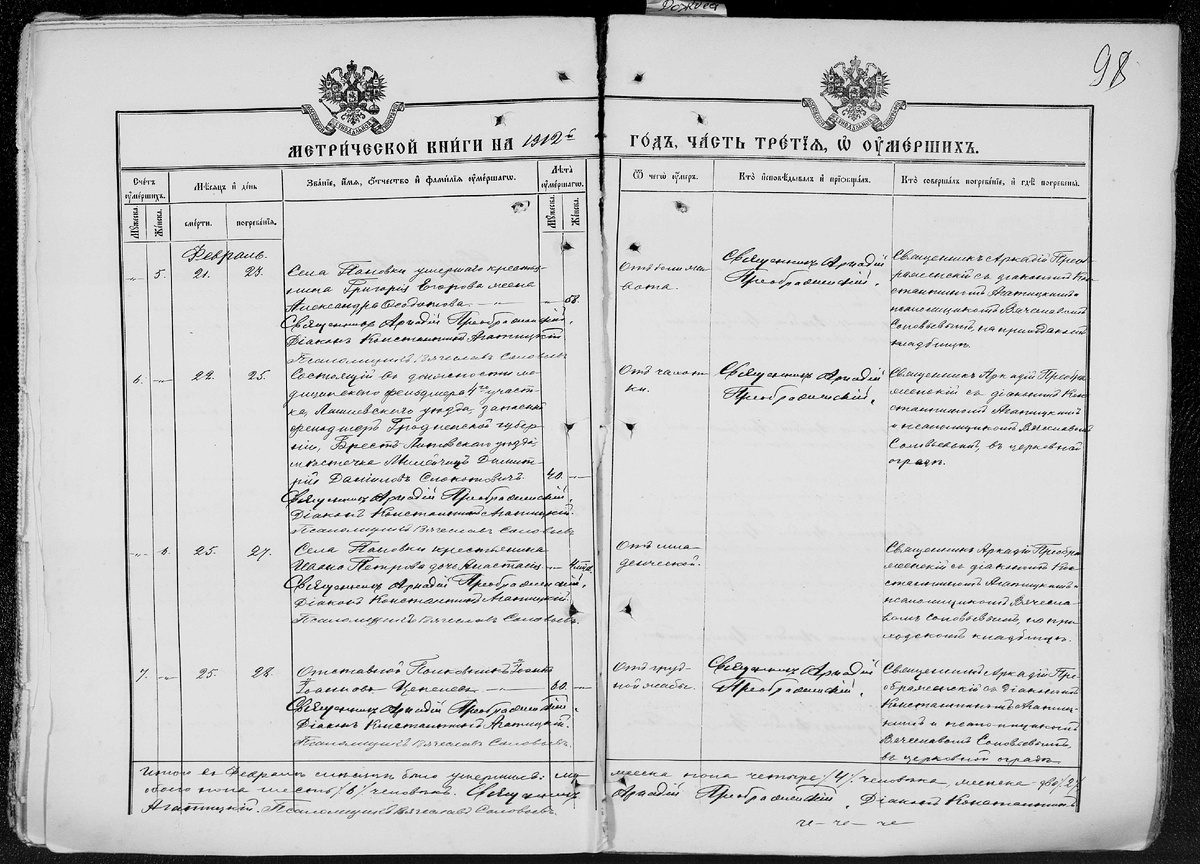 98
МЕТРИ́ЧЕСКОЙ КНИ́ГИ НА 1912 г
ГО́ДЪ, ЧА́СТЬ ТРЕ́ТІѦ, Ѿ ОУМЕ́РШИХЪ.
Сче́тъ оуме́ршихъ.
Му́жеска.
Же́нска.
Мѣ́сѧцъ и҆ де́нь
сме́рти.
погребе́нїѧ.
Зва́нїе, и҆́мѧ, ѻ҆́тчество и҆ фами́лїѧ оуме́ршагѡ.
Лѣ́та оуме́ршагѡ.
Му́жеска.
Же́нска.
Ѿ чегѡ̀ оу́меръ.
Кто̀ и҆сповѣ́дывалъ и҆ прїѡбща́лъ.
Кто̀ соверша́лъ погребе́нїе, и҆ гдѣ̀ погребены̀.
Февраль.
„ 5. 21. 23.
Села Поповки умершаго крестья-
нина Григорія Егорова жена
Александра Ѳеодотова — „ — 58.
Священникъ Аркадій Преображенскій,
Діаконъ Константинъ Агатицкій.
Псаломщикъ Вячеславъ Соловьевъ
Отъ боли жи-
вота.
Священникъ Аркадій
Преображенскій.
Священникъ Аркадій Преоб-
раженскій съ діакономъ Кон-
стантиномъ Агатицкимъ и
псаломщикомъ Вячеславомъ
Соловьевымъ, на приходскомъ
кладбищѣ.
6. — 22. 25.
Состоящій въ должности ме-
дицинскаго фельдшера 4го участ-
ка, уѣзда, запасный
фельдшеръ Гродненской губер-
ніи, Брестъ-Литовскаго уѣзда,
мѣстечка Милейчицъ Димит-
рій Даниловъ 40. —
Священникъ Аркадій Преображенскій,
Діаконъ Константинъ Агатицкій.
Псаломщикъ Вячеславъ Соловьевъ
Отъ чахот-
ки.
Священникъ Аркадій
Преображенскій.
Священникъ Аркадій Преобра-
женскій съ діакономъ Кон-
стантиномъ Агатицкимъ
и псаломщикомъ Вячеславомъ
Соловьевымъ, въ церковной
оградѣ.
„ 6. 25. 27.
Села Поповки крестьянина
Ивана Петрова дочь Анастасія
Священникъ Аркадій Преображенскій,
Діаконъ Константинъ Агатицкій.
Псаломщикъ Вячеславъ Соловьевъ.
Отъ мла-
денческой.
Священникъ Аркадій Преобра-
женскій съ діакономъ Кон-
стантиномъ Агатицкимъ и
псаломщикомъ Вячесла-
вомъ Соловьевымъ, на при-
ходскомъ кладбищѣ.
7. „ 25. 28.
Отставной Полковникъ Іоаннъ
Іоанновъ — „ — 60. —
Священникъ Аркадій Преображенскій,
Діаконъ Константинъ Агатицкій.
Псаломщикъ Вячеславъ Соловьевъ.
Отъ груд-
ной жабы.
Священникъ Аркадій
Преображенскій.
Священникъ Аркадій Пре-
ображенскій съ Діакономъ
Константиномъ Агатиц-
кимъ и псаломщикомъ
Вячеславомъ Соловьевымъ,
въ церковной оградѣ
Итого въ Февралѣ мѣсяцѣ было умершихъ: му-
жеска пола четыре /4/ человѣка, женска два /2/
обоего пола шесть /6/ человѣкъ. Священникъ
Аркадій Преображенскій, Діаконъ Константинъ
Агатицкій. Псаломщикъ Вячеславъ Соловьевъ.